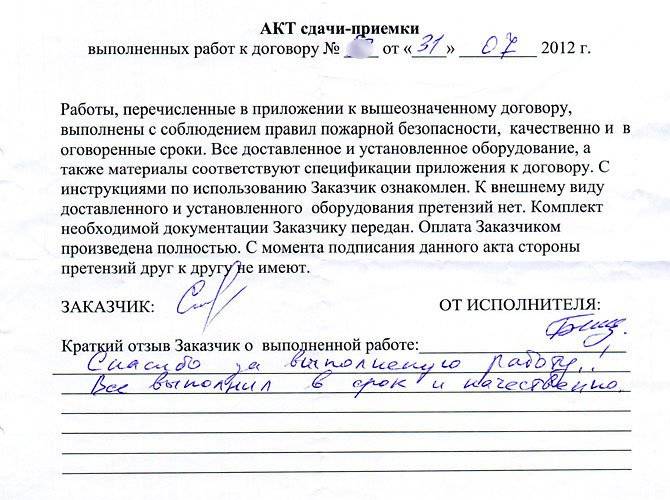 АКТ сдачи-приемки
выполненных работ к договору № от «31» 07 2012 г.
Работы, перечисленные в приложении к вышеозначенному договору,
выполнены с соблюдением правил пожарной безопасности, качественно и в
оговоренные сроки. Все доставленное и установленное оборудование, а
также материалы соответствуют спецификации приложения к договору. С
инструкциями по использованию Заказчик ознакомлен. К внешнему виду
доставленного и установленного оборудования претензий нет. Комплект
необходимой документации Заказчику передан. Оплата Заказчиком
произведена полностью. С момента подписания данного акта стороны
претензий друг к другу не имеют.
ЗАКАЗЧИК: ОТ ИСПОЛНИТЕЛЯ:
Краткий отзыв Заказчик о выполненной работе:
Спасибо за выполненую работу!
Все выполнил в срок и качественно.